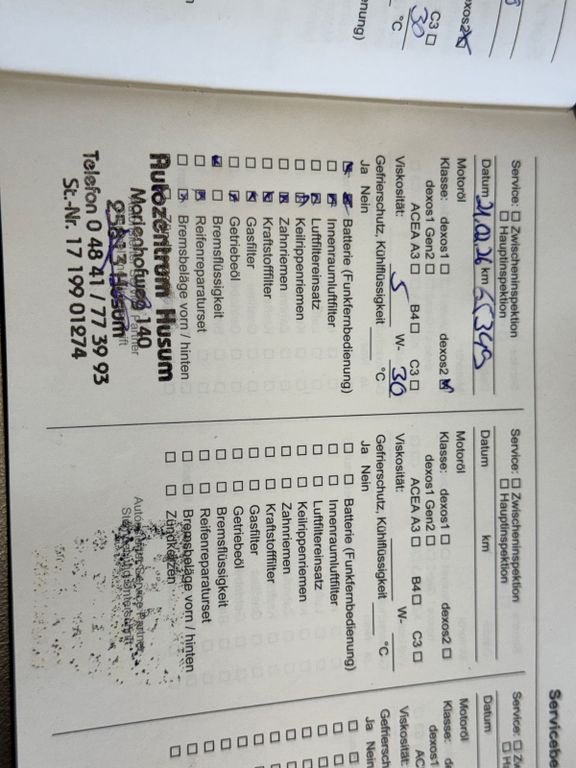 C3 ☐
30
°C
dexos2 ☒
Service: ☐ Zwischeninspektion
☐ Hauptinspektion
Datum 21.02.26 km 65349
Motoröl
Klasse: dexos1 ☐ dexos2 ☒
dexos1 Gen2 ☐
ACEA A3 ☐ B4 ☐ C3 ☐
Viskosität: 5 W- 30
Gefrierschutz, Kühlflüssigkeit °C
Ja Nein
☒ ☒ Batterie (Funkfernbedienung)
☐ ☒ Innenraumluftfilter
☐ ☒ Luftfiltereinsatz
☐ ☒ Keilrippenriemen
☐ ☒ Zahnriemen
☐ ☒ Kraftstofffilter
☐ ☒ Gasfilter
☐ ☒ Getriebeöl
☒ ☐ Bremsflüssigkeit
☐ ☒ Reifenreparaturset
☐ ☒ Bremsbeläge vorn / hinten
Autozentrum Husum
Marienhofweg 140
25813 Husum
Telefon 0 48 41 / 77 39 93
St.-Nr. 17 199 01274
Service: ☐ Zwischeninspektion
☐ Hauptinspektion
Datum km
Motoröl
Klasse: dexos1 ☐ dexos2 ☐
dexos1 Gen2 ☐
ACEA A3 ☐ B4 ☐ C3 ☐
Viskosität: W-
Gefrierschutz, Kühlflüssigkeit °C
Ja Nein
☐ ☐ Batterie (Funkfernbedienung)
☐ ☐ Innenraumluftfilter
☐ ☐ Luftfiltereinsatz
☐ ☐ Keilrippenriemen
☐ ☐ Zahnriemen
☐ ☐ Kraftstofffilter
☐ ☐ Gasfilter
☐ ☐ Getriebeöl
☐ ☐ Bremsflüssigkeit
☐ ☐ Reifenreparaturset
☐ ☐ Bremsbeläge vorn / hinten
☐ ☐ Zündkerzen
Service: ☐
Datum
Motoröl
Klasse:
dexos1
Viskosität:
Ja Nein